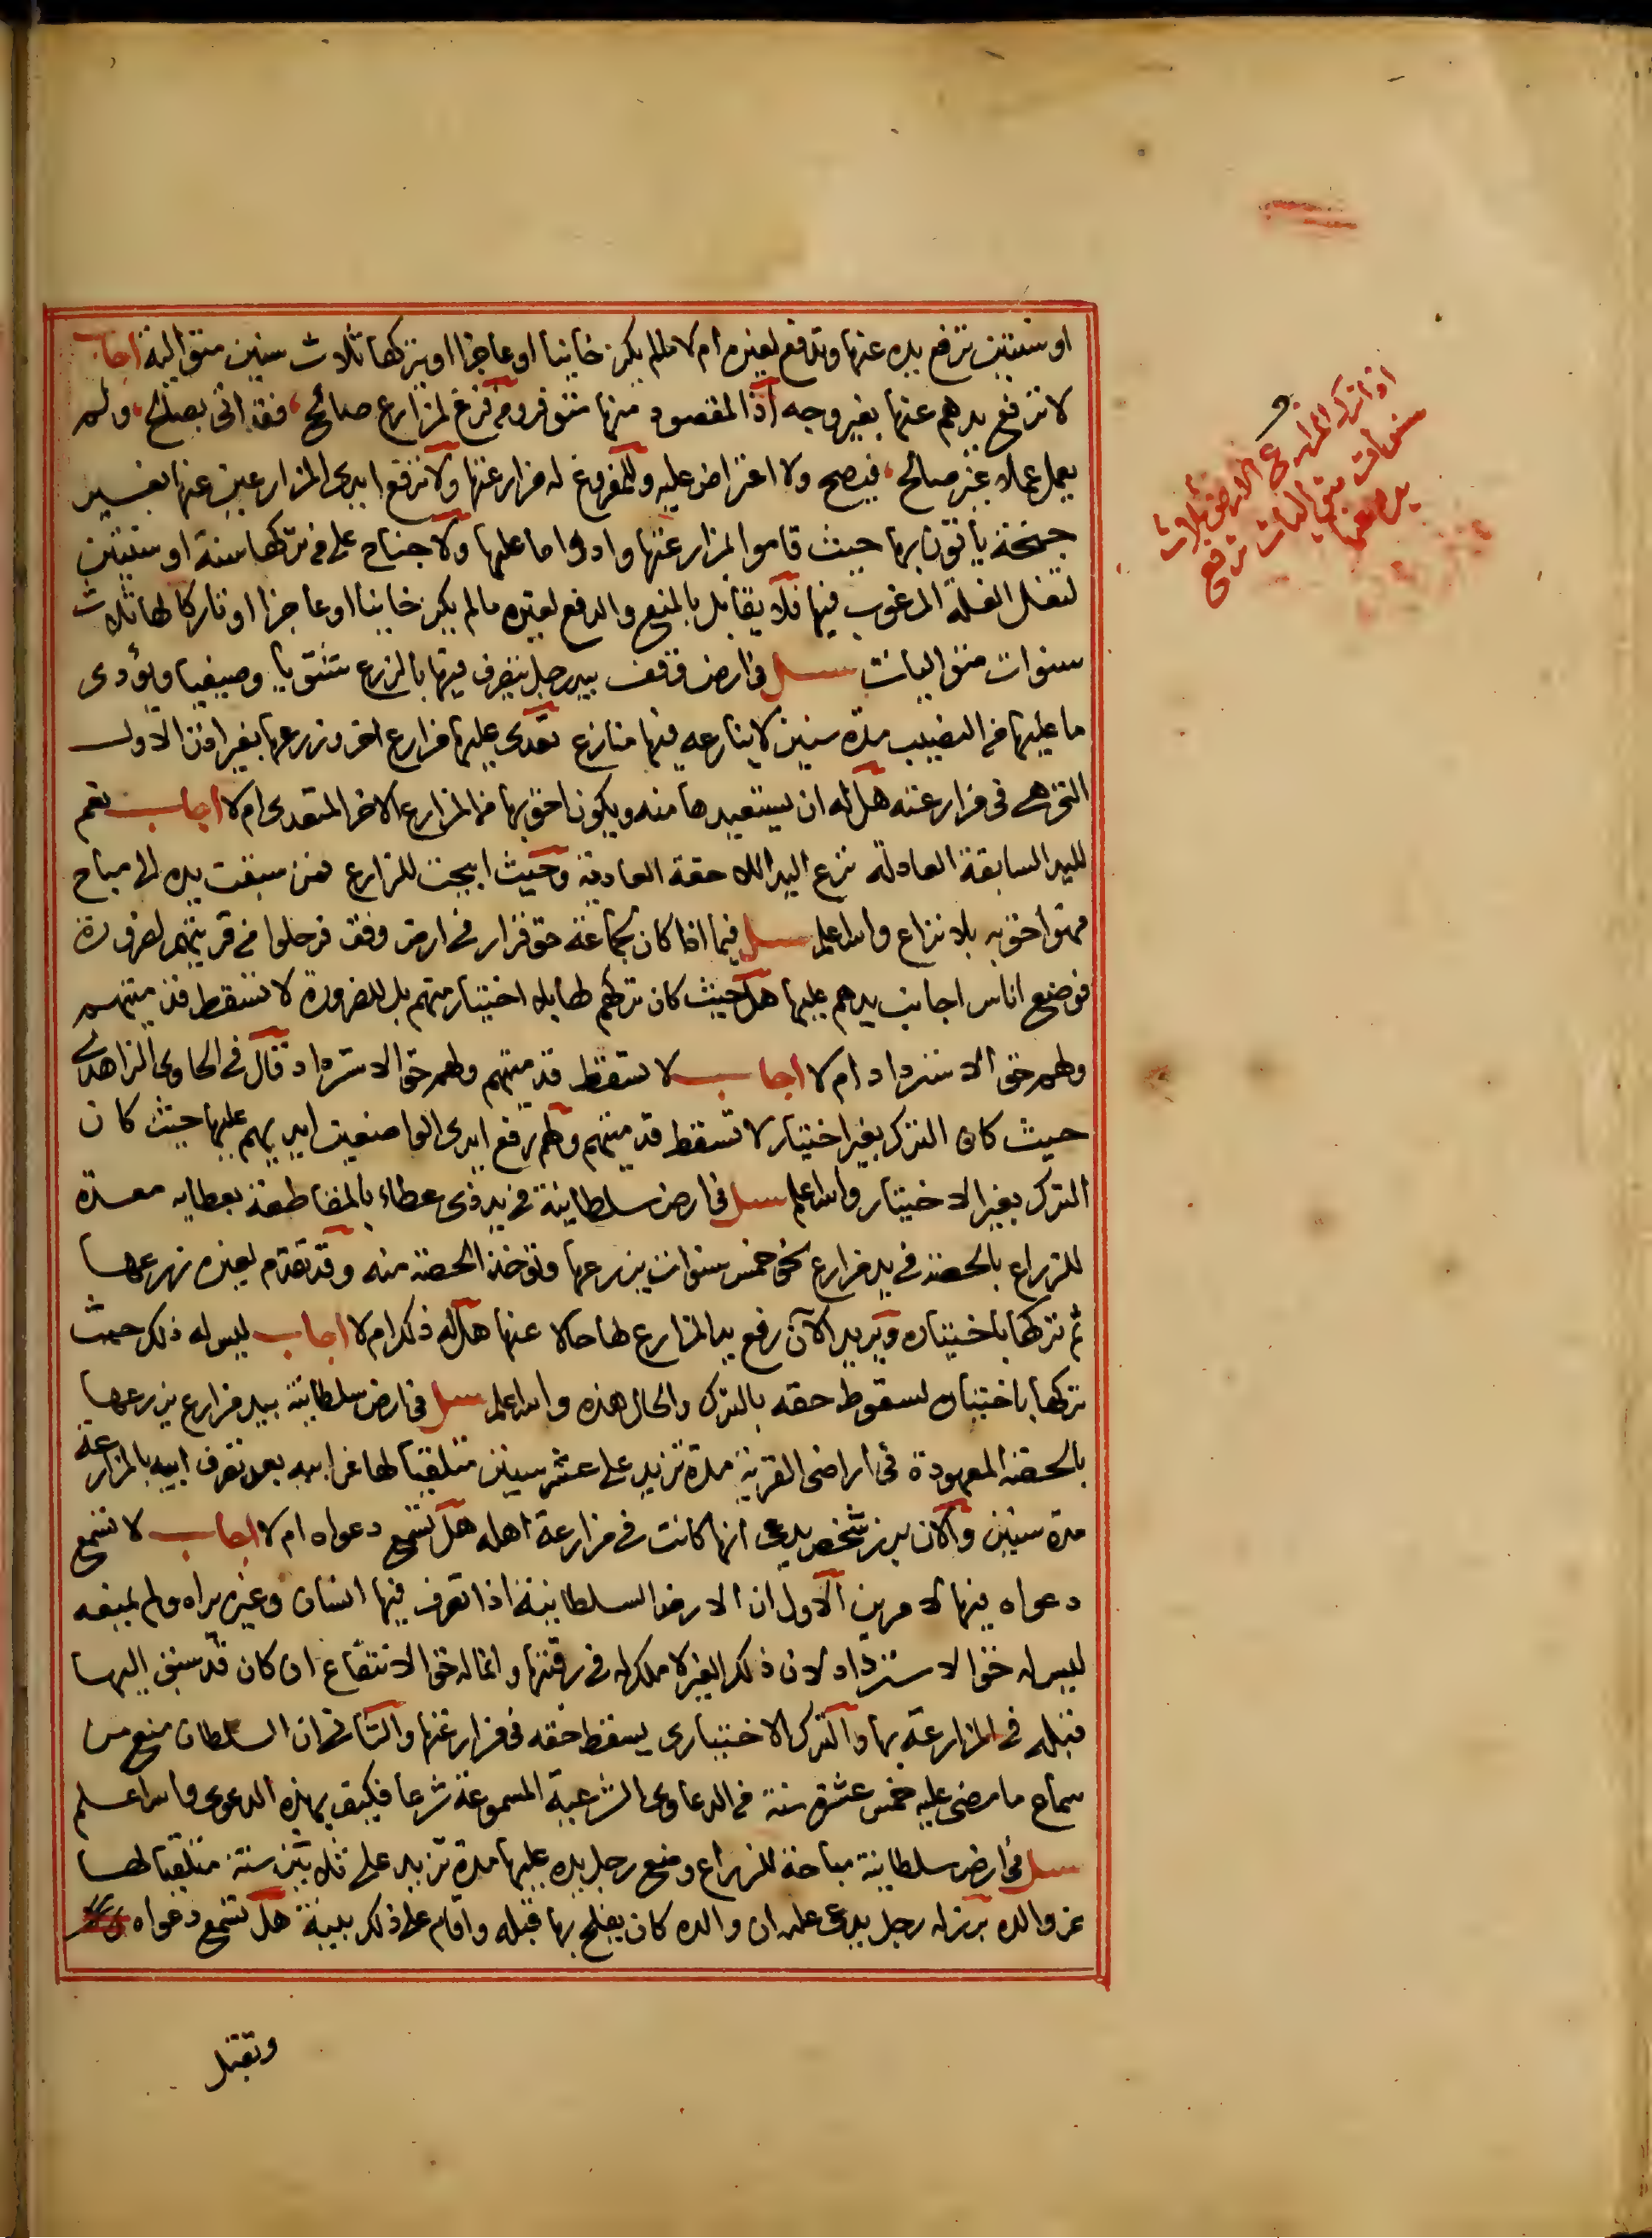 او سنتين ترفع يده عنها وتدفع لغيره ام لا مالم يكن خاينا او عاجزا او يتركها ثلاث سنين متوالية اجاب
لا ترفع يدهم عنها بغير وجه اذ المقصود منها متوفر ومن فرغ لمزارع صالح، فقد اتى بصالح، ولم
يعمل عملا غير صالح، فيصح ولا اعتراض عليه وللمفروغ له مزارعتها ولا ترفع ايدى المزارعين عنها بغير
جنحة يأتون بها حيث قاموا لمزارعتها وادوا ما عليها ولا جناح على من تركها سنة او سنتين
لتغل الغلة المرغوب فيها فلا يقابل بالمنع والدفع لغيره مالم يكن خاينا او عاجزا او تاركا لها ثلاث
سنوات متواليات سئل فى ارض وقف بيد رجل يتصرف فيها بالزرع شتويا وصيفيا ويؤدى
ما عليها من النصيب مدة سنين لا ينازعه فيها منازع تعدى عليها مزارع اخر وزرعها بغير اذن الاول
التى هى فى مزارعته هل له ان يستعيدها منه ويكون احق بها من المزارع الاخر المتعدى ام لا اجاب نعم
لليد السابقة العادلة نزع اليد اللاحقة العادية وحيث ابيحت للزارع فمن سبقت يده الى مباح
فهو احق به بلا نزاع والله اعلم سئل فيما اذا كان لجماعة حق قرار فى ارض وقف فرحلوا من قريتهم لضرورة
فوضع اناس اجانب يدهم عليها هل حيث كان تركهم لها بلا اختيار منهم بل للضرورة لا تسقط قدميتهم
ولهم حق الاسترداد ام لا اجاب لا تسقط قدميتهم ولهم حق الاسترداد قال فى الحاوى الزاهدى
حيث كان الترك بغير اختيار لا تسقط قدميتهم ولهم رفع ايدى الواضعين ايديهم عليها حيث كان
الترك بغير الاختيار والله اعلم سئل فى ارض سلطانية فى يد ذى عطاء بالمقاطعة بعطايه معدة
للزراع بالحصة فى يد مزارع نحو خمس سنوات يزرعها وتؤخذ الحصة منه وقد تقدم لغيره زرعها
ثم تركها باختياره ويريد الآن رفع يد المزارع لها حالا عنها هل له ذلك ام لا اجاب ليس له ذلك حيث
تركها باختياره لسقوط حقه بالترك والحال هذه والله اعلم سئل فى ارض سلطانية بيد مزارع يزرعها
بالحصة المعهودة فى اراضى القرية مدة تزيد على عشر سنين متلقيا لها عن ابيه بعد تصرف ابيه بالمزارعة
مدة سنين والآن برز شخص يدعى انها كانت فى مزارعة اهله هل تسمع دعواه ام لا اجاب لا تسمع
دعواه فيها لامرين الاول ان الارض السلطانية اذا تصرف فيها انسان وغيره يراه ولم يمنعه
ليس له حق الاسترداد لان ذلك الغير لا ملك له فى رقبتها وانما له حق الانتفاع ان كان قد سبق اليها
قبله فى المزارعة بها والترك الاختيارى يسقط حقه فى مزارعتها والثانى ان السلطان منع من
سماع ما مضى عليه خمس عشرة سنة من الدعاوى الشرعية المسموعة شرعا فكيف بهذه الدعوى والله اعلم
سئل فى ارض سلطانية مباحة للزراع وضع رجل يده عليها مدة تزيد على ثلاثين سنة متلقيا لها
عن والده برز له رجل يدعى عليه ان والده كان يفلح بها قبله واقام على ذلك بينة هل تسمع دعواه
وتقبل
اذا ترك المزارع الارض ثلاث
سنوات متواليات ترفع
يده عنها